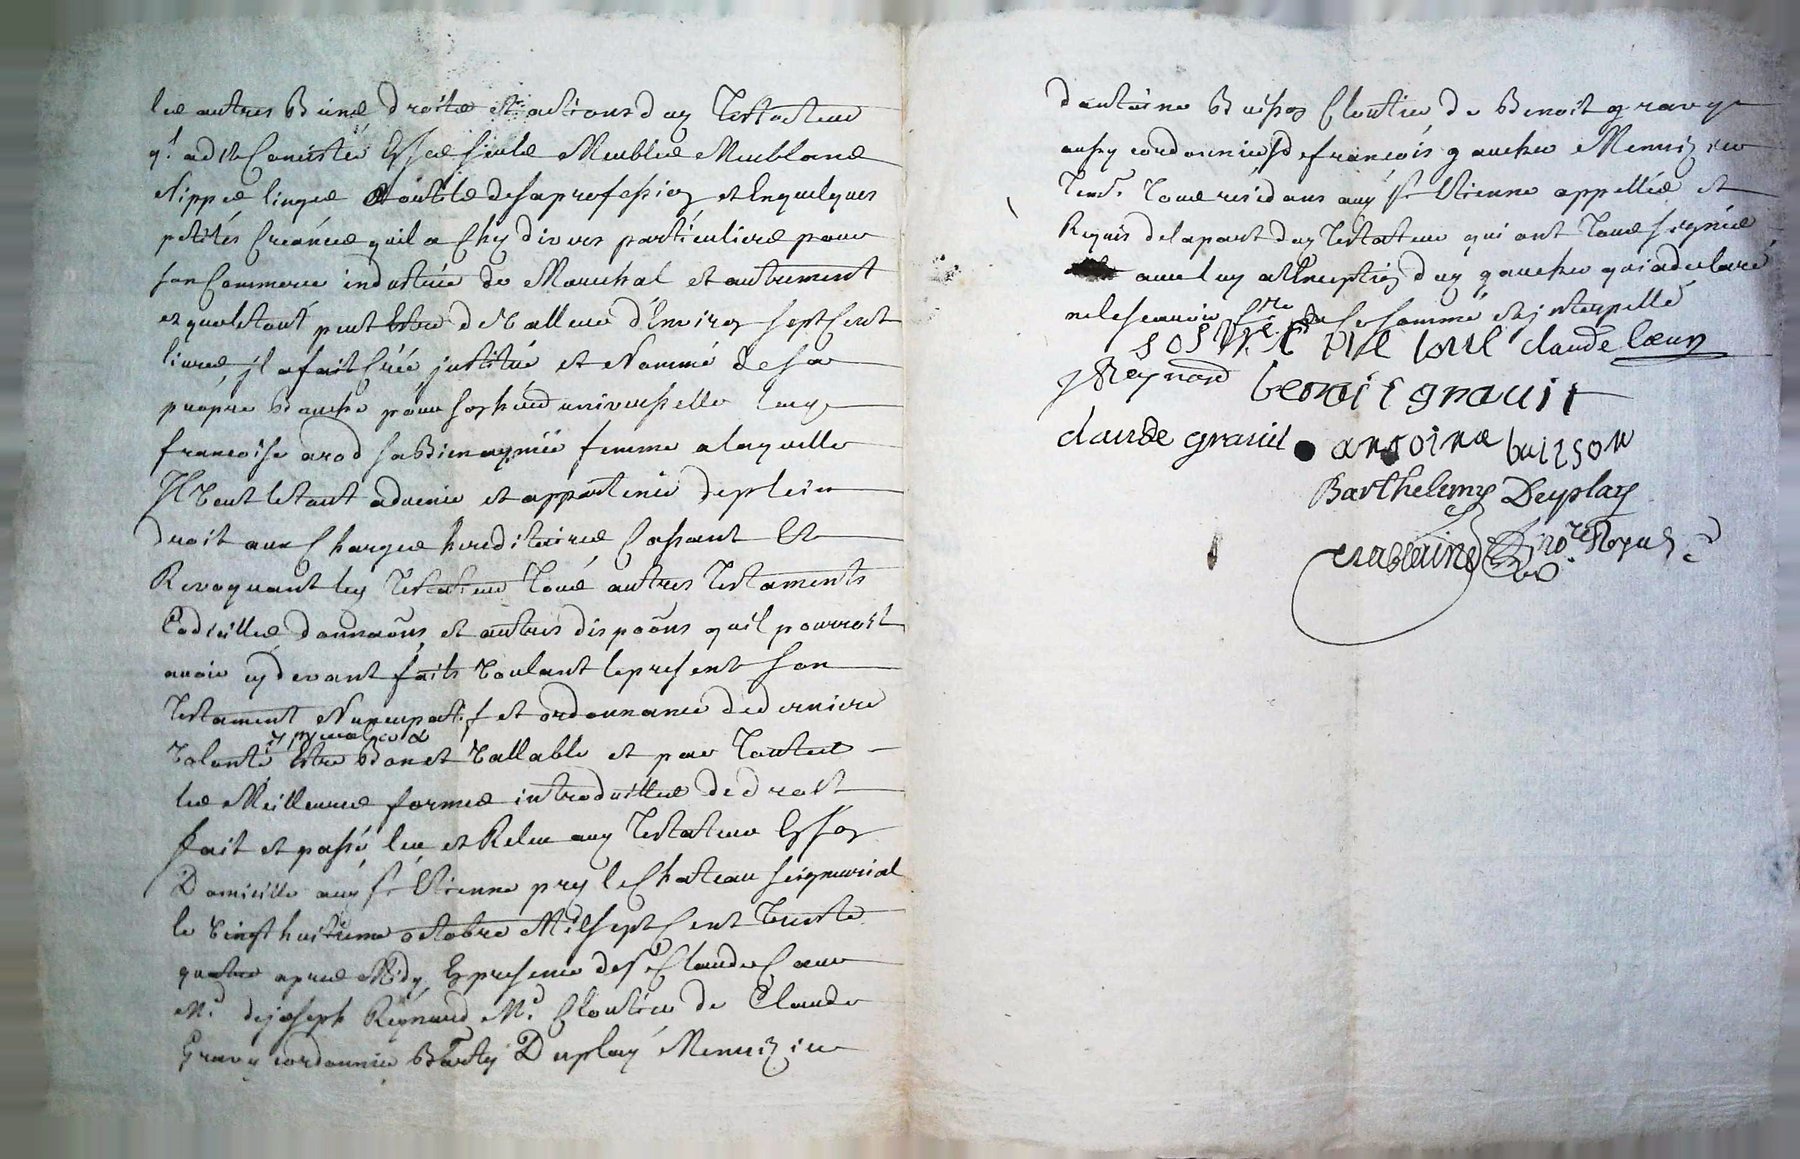 les autres Biens droits et actions duy Testateur
q.l a dit Consister Esses seuls Meubles Meublans
Nippes linges outils de sa profession et Enquelques
petités Creances quil a Chy divers particuliers pour
son Commerce industrie de Marechal et autrement
et quoletout peut Estre de Valleur d'Environ sept Cent
livres, jl a fait Créé justitué et Nommé de sa
propre Bouche pour son heird universelle
francoise arod sa Bienaymée femme a laquelle
Jl Veut letout advenir et appartenir deplein
droit aux Charges hereditaires Cassant Et
Revoquant ley Testateur Tous autres Testaments
Codicilles donnaõns et autres dispoõns quil pourroit
avoir cydevant faits Voulant lepresent son
Testament Nuncupatif et ordonnance dederniere
Volonté Estre Bon et Vallable et par Toutes
les Meilleures formes introduittes de droit
fait et passé leu et Releu auy Testateur En son
Domicille auy St Etienne prez le Chateau seigneurial
le Vingt huitieme octobre Mil sept Cent Trente
quatre apres Midy, En presence de Sr Claude Coeur
M.d de joseph Reynard M.d Cloutier de Claude
Gravy cordonnier Barty Duplay Menuizier
dantoine Buisson Cloutier de Benoit gravy
aussy cordonnier et de francois gaucher Menuizier
Tous residans auy St Etienne appellés et
Requis delapart duy Testateur qui ont Tous signés
avec luy a lException duy gaucher qui a declaré
nelescavoir faire de ce sommé et jnterpellé
claude Coeur
J Reynard benoit gravit
claude gravit antoine buisson
Barthelemy Deplay
no.re Royal